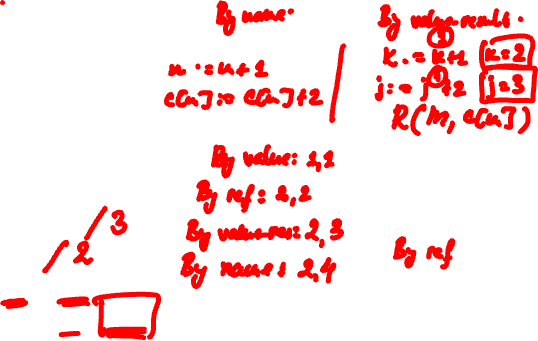 By name.
n := n+1
c[n] := c[n]+2
By value-result.
k := k+1 k=2
j := j+2 j=3
R(m, c[n])
By value: 2,1
By ref: 2,2
By value-res: 2,3
By name: 2,4
By ref
/ 3
/ 2